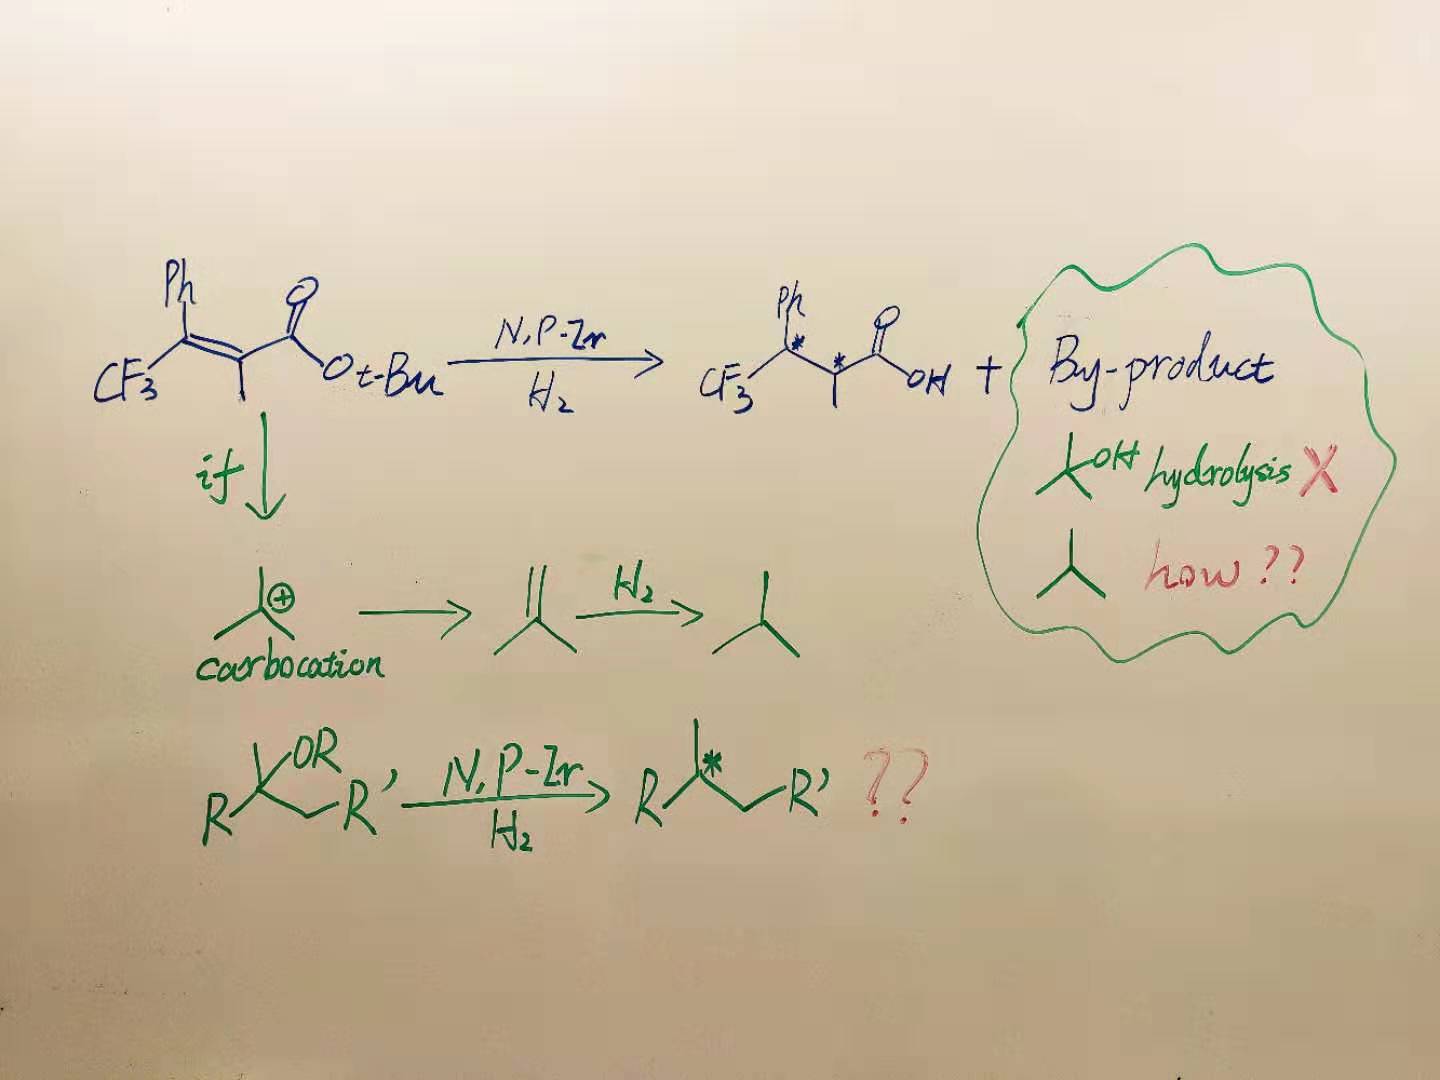 Ph
O
CF3
O t-Bu
N,P-Ir
H2
Ph
*
*
O
CF3
OH
+
By-product
if
OH hydrolysis X
how ??
+
carbocation
H2
OR
R
R'
N,P-Ir
H2
*
R
R'
??